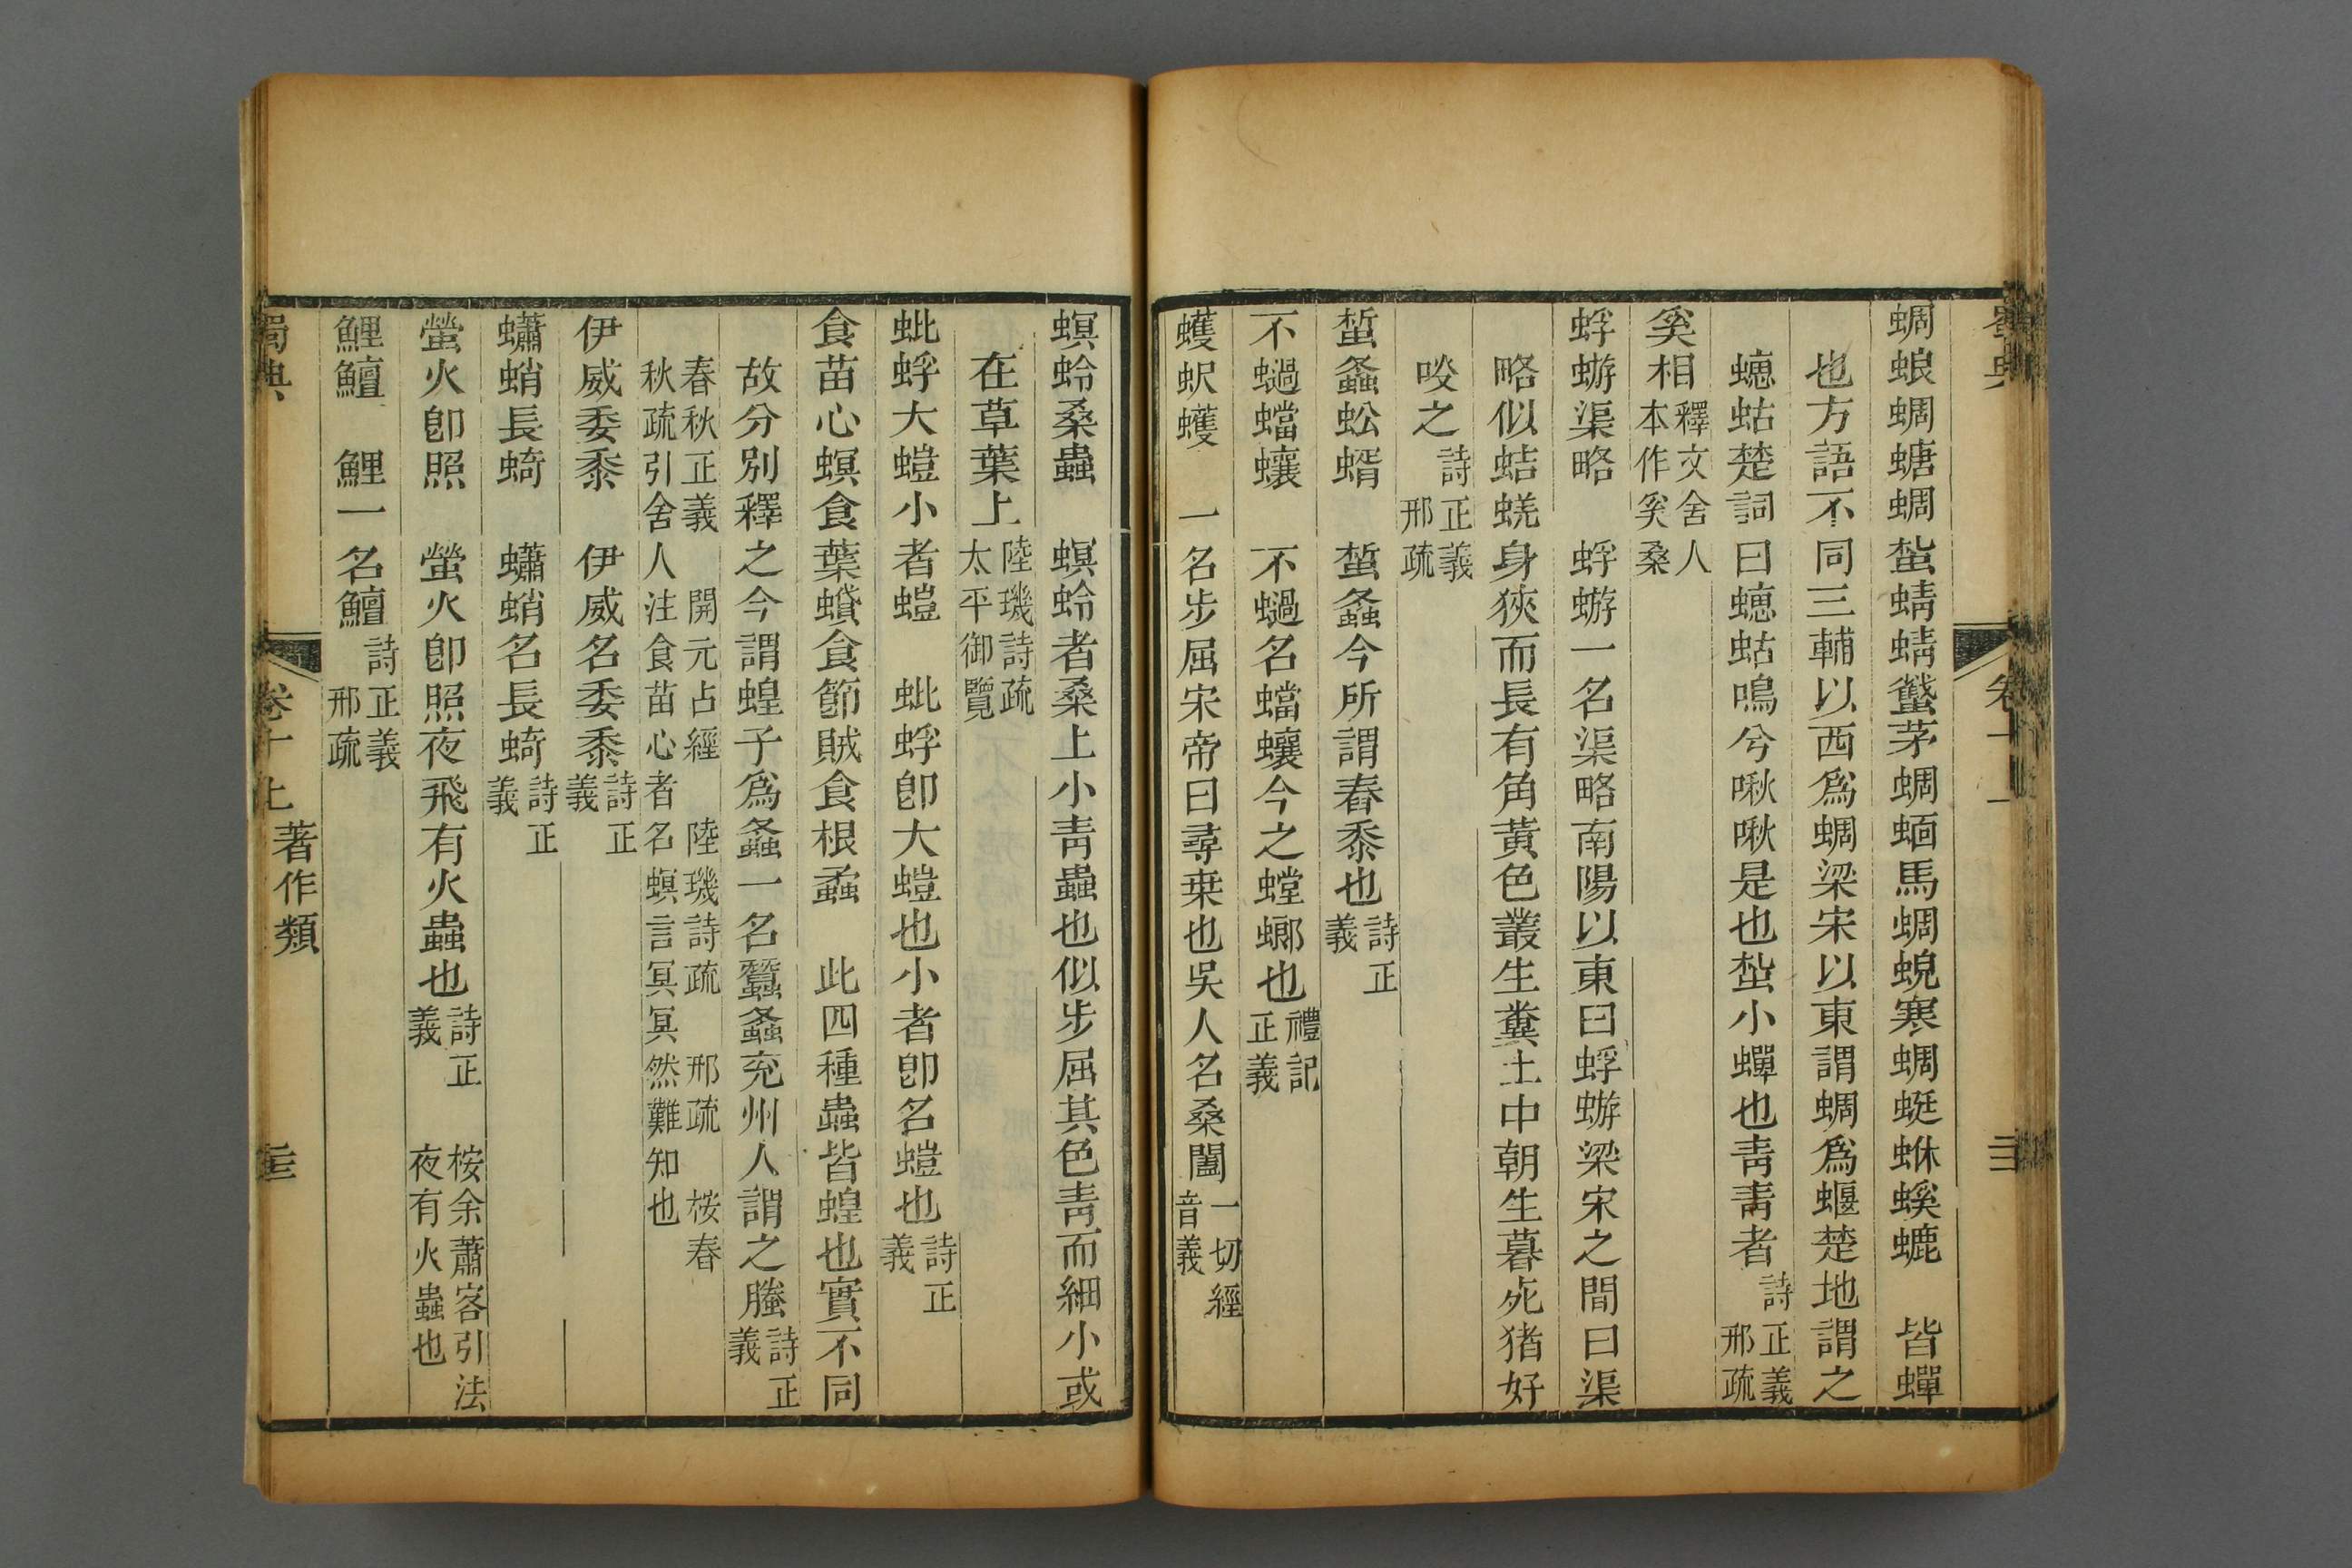 蜩蜋蜩螗蜩蚻蜻蜻蠽茅蜩蝒馬蜩蜺寒蜩蜓蚞螇螰　皆蟬
也方語不同三輔以西爲蜩梁宋以東謂蜩爲蝘楚地謂之
蟪蛄楚詞曰蟪蛄鳴兮啾啾是也蚻小蟬也靑靑者詩正義邢疏
奚相釋文舍人本作奚桑
蜉蝣渠略　蜉蝣一名渠略南陽以東曰蜉蝣梁宋之間曰渠
略似蛣蜣身狹而長有角黃色叢生糞土中朝生暮死猪好
啖之詩正義邢疏
蜤螽蚣蝑　蜤螽今所謂舂黍也詩正義
不蟈蟷蠰　不蟈名蟷蠰今之螳蜋也禮記正義
蠖蚇蠖　一名步屈宋帝曰尋桒也吳人名桑闔一切經音義
螟蛉桑蟲　螟蛉者桑上小靑蟲也似步屈其色靑而細小或
在草葉上陸璣詩疏太平御覽
蚍蜉大螘小者螘　蚍蜉卽大螘也小者卽名螘也詩正義
食苗心螟食葉蟘食節賊食根蟊　此四種蟲皆蝗也實不同
故分別釋之今謂蝗子爲螽一名蠶螽兖州人謂之螣詩正義
春秋正義　開元占經　陸璣詩疏　邢疏　桉春秋疏引舍人注食苗心者名螟言冥冥然難知也
伊威委黍　伊威名委黍詩正義
蠨蛸長蜻　蠨蛸名長蜻詩正義
螢火卽照　螢火卽照夜飛有火蟲也詩正義　桉余蕭客引法夜有火蟲也
鯉鱣　鯉一名鱣詩正義邢疏
蜀典　卷十上　著作類